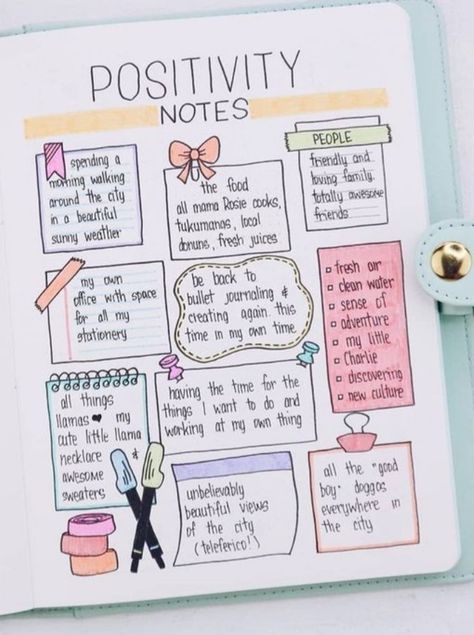 POSITIVITY
NOTES
spending a
morning walking
around the city
in a beautiful
sunny weather
the food
all mama Rosie cooks,
tukumanas, local
donuns, fresh juices
PEOPLE
friendly and
loving family.
totally awesome
friends
my own
office with space
for all my
stationery
be back to
bullet journaling &
creating again this
time in my own time
fresh air
clean water
sense of
adventure
my little
Charlie
discovering
new culture
all things
llamas ♥ my
cute little llama
necklace &
awesome
sweaters
having the time for the
things I want to do and
working at my own thing
unbelievably
beautiful views
of the city
(teleferico!)
all the "good
boy" doggos
everywhere in
the city